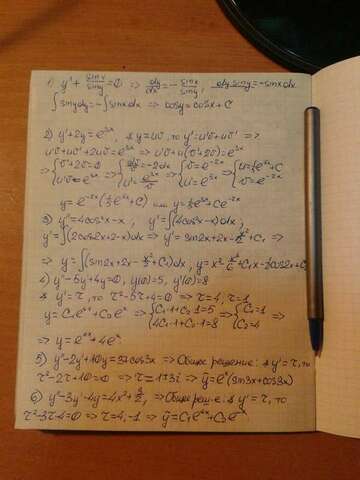 1) y' + sinx/siny = 0 ⇒ dy/dx = - sinx/siny, dy siny = -sinx dx
∫siny dy = -∫sinx dx ⇒ cosy = cosx + C
2) y' + 2y = e^3x, y = uv, то y' = u'v + uv' ⇒
u'v + uv' + 2uv = e^3x ⇒ u'v + u(v' + 2v) = e^3x
y = e^-2x (1/5 e^5x + C) или y = 1/5 e^3x + Ce^-2x
3) y'' = 4cos²x - x, y' = ∫(4cos²x - x)dx,
y' = ∫(2cos2x + 2 - x)dx ⇒ y' = sin2x + 2x - x²/2 + C₁ ⇒
⇒ y = ∫(sin2x + 2x - x²/2 + C₁)dx, y = x² - x³/6 + C₁x - 1/2 cos2x + C₂
4) y'' - 5y' + 4y = 0, y(0) = 5, y'(0) = 8
y' = τ, то τ² - 5τ + 4 = 0 ⇒ τ = 4, τ = 1
⇒ y = e^4x + 4e^x
5) y'' - 2y' + 10y = 37cos3x ⇒ Общее решение: y' = τ, то
τ² - 2τ + 10 = 0 ⇒ τ = 1 ± 3i ⇒ ȳ = e^x (sin3x + cos3x)
6) y'' - 3y' - 4y = 4x² + 3/2, ⇒ Общ. реш-е: y' = τ, то
τ² - 3τ - 4 = 0 ⇒ τ = 4, -1 ⇒ ȳ = C₁e^4x + C₂e^-x